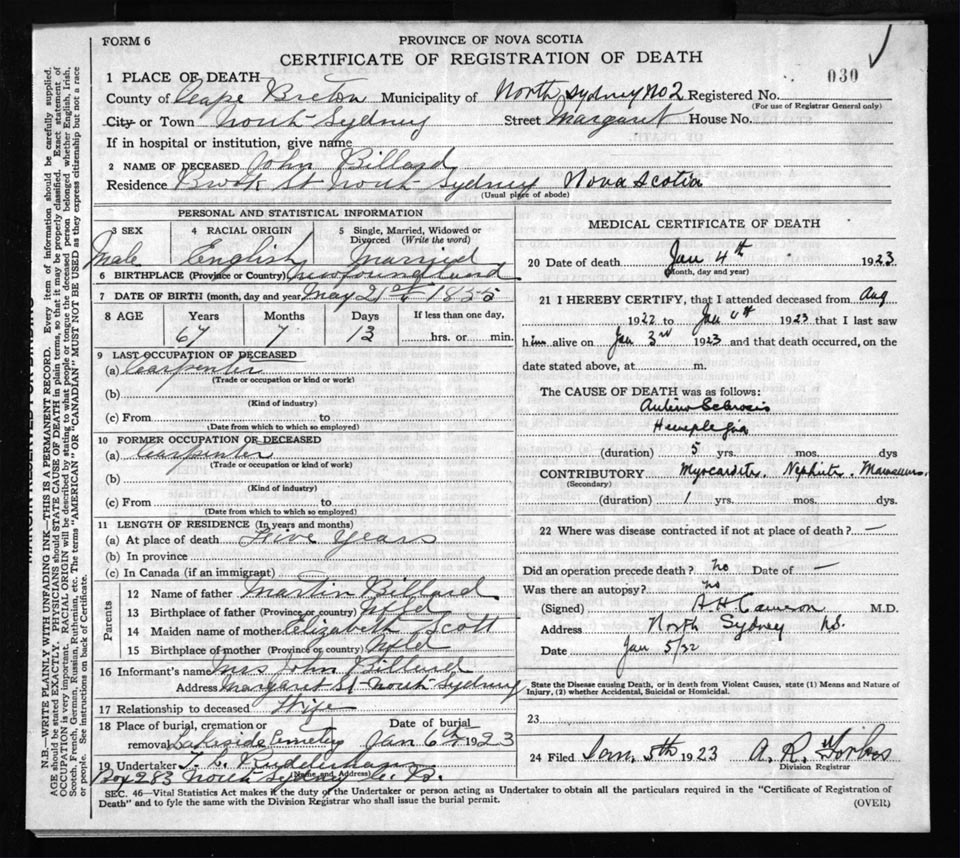 FORM 6
PROVINCE OF NOVA SCOTIA
CERTIFICATE OF REGISTRATION OF DEATH
030
1 PLACE OF DEATH
County of Cape Breton Municipality of North Sydney No 2 Registered No.
(For use of Registrar General only)
City or Town North Sydney Street Margaret House No.
If in hospital or institution, give name
2 NAME OF DECEASED John Billard
Residence St North Sydney Nova Scotia
(Usual place of abode)
PERSONAL AND STATISTICAL INFORMATION
3 SEX 4 RACIAL ORIGIN 5 Single, Married, Widowed or Divorced (Write the word)
Male English Married
6 BIRTHPLACE (Province or Country) Newfoundland
7 DATE OF BIRTH (month, day and year) May 21st 1855
8 AGE Years Months Days If less than one day,
67 7 13 hrs. or min.
9 LAST OCCUPATION OF DECEASED
(a) Carpenter
(Trade or occupation or kind or work)
(b)
(Kind of industry)
(c) From to
(Date from which to which so employed)
10 FORMER OCCUPATION OR DECEASED
(a) Carpenter
(Trade or occupation or kind of work)
(b)
(Kind of industry)
(c) From to
(Date from which to which so employed)
11 LENGTH OF RESIDENCE (In years and months)
(a) At place of death Five Years
(b) In province
(c) In Canada (if an immigrant)
Parents
12 Name of father Martin Billard
13 Birthplace of father (Province or country) Nfld
14 Maiden name of mother Elizabeth Scott
15 Birthplace of mother (Province or country) Nfld
16 Informant's name Mrs John Billard
Address Margaret St North Sydney
17 Relationship to deceased Wife
18 Place of burial, cremation or removal Lakeside Cemetery
Date of burial Jan 6th 1923
19 Undertaker T. L.
(Name and Address)
Box 283 North Sydney C. B.
MEDICAL CERTIFICATE OF DEATH
20 Date of death Jan 4th 1923
(Month, day and year)
21 I HEREBY CERTIFY, that I attended deceased from Aug
1922 to Jan 4th 1923 that I last saw
him alive on Jan 3rd 1923 and that death occurred, on the
date stated above, at m.
The CAUSE OF DEATH was as follows:
Arterio Sclerosis
Hemiplegia
(duration) 5 yrs. mos. dys
CONTRIBUTORY Myocarditis, Nephritis.
(Secondary)
(duration) 1 yrs. mos. dys.
22 Where was disease contracted if not at place of death? —
Did an operation precede death? no Date of —
Was there an autopsy? no
(Signed) A.H. Cameron M.D.
Address North Sydney N.S.
Date Jan 5/22
State the Disease causing Death, or in death from Violent Causes, state (1) Means and Nature of
Injury, (2) whether Accidental, Suicidal or Homicidal.
23
24 Filed Jan. 5th 1923 A. R. Forbes
Division Registrar
SEC. 46—Vital Statistics Act makes if the duty of the Undertaker or person acting as Undertaker to obtain all the particulars required in the "Certificate of Registration of
Death" and to fyle the same with the Division Registrar who shall issue the burial permit.
(OVER)
N.B.—WRITE PLAINLY WITH UNFADING INK—THIS IS A PERMANENT RECORD. Every item of information should be carefully supplied.
AGE should be stated EXACTLY. PHYSICIANS should STATE CAUSE OF DEATH in plain terms, so that it may be properly classified. Exact statement of
OCCUPATION is very important. RACIAL ORIGIN will be described by stating to what people or tongue the deceased person belonged whether English, Irish,
Scotch, French, German, Russian, Ruthenian, etc. The terms "AMERICAN" or "CANADIAN" MUST NOT BE USED as they express citizenship but not a race
or people. See instructions on back of Certificate.